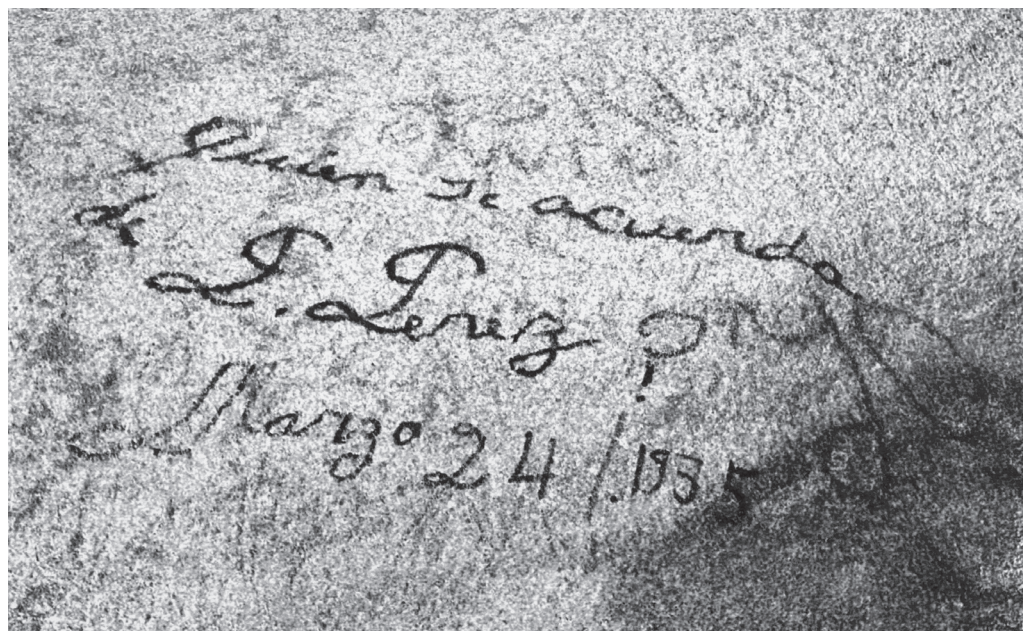 Quien se acuerda
de
P. Perez ?
Marzo 24/.1935